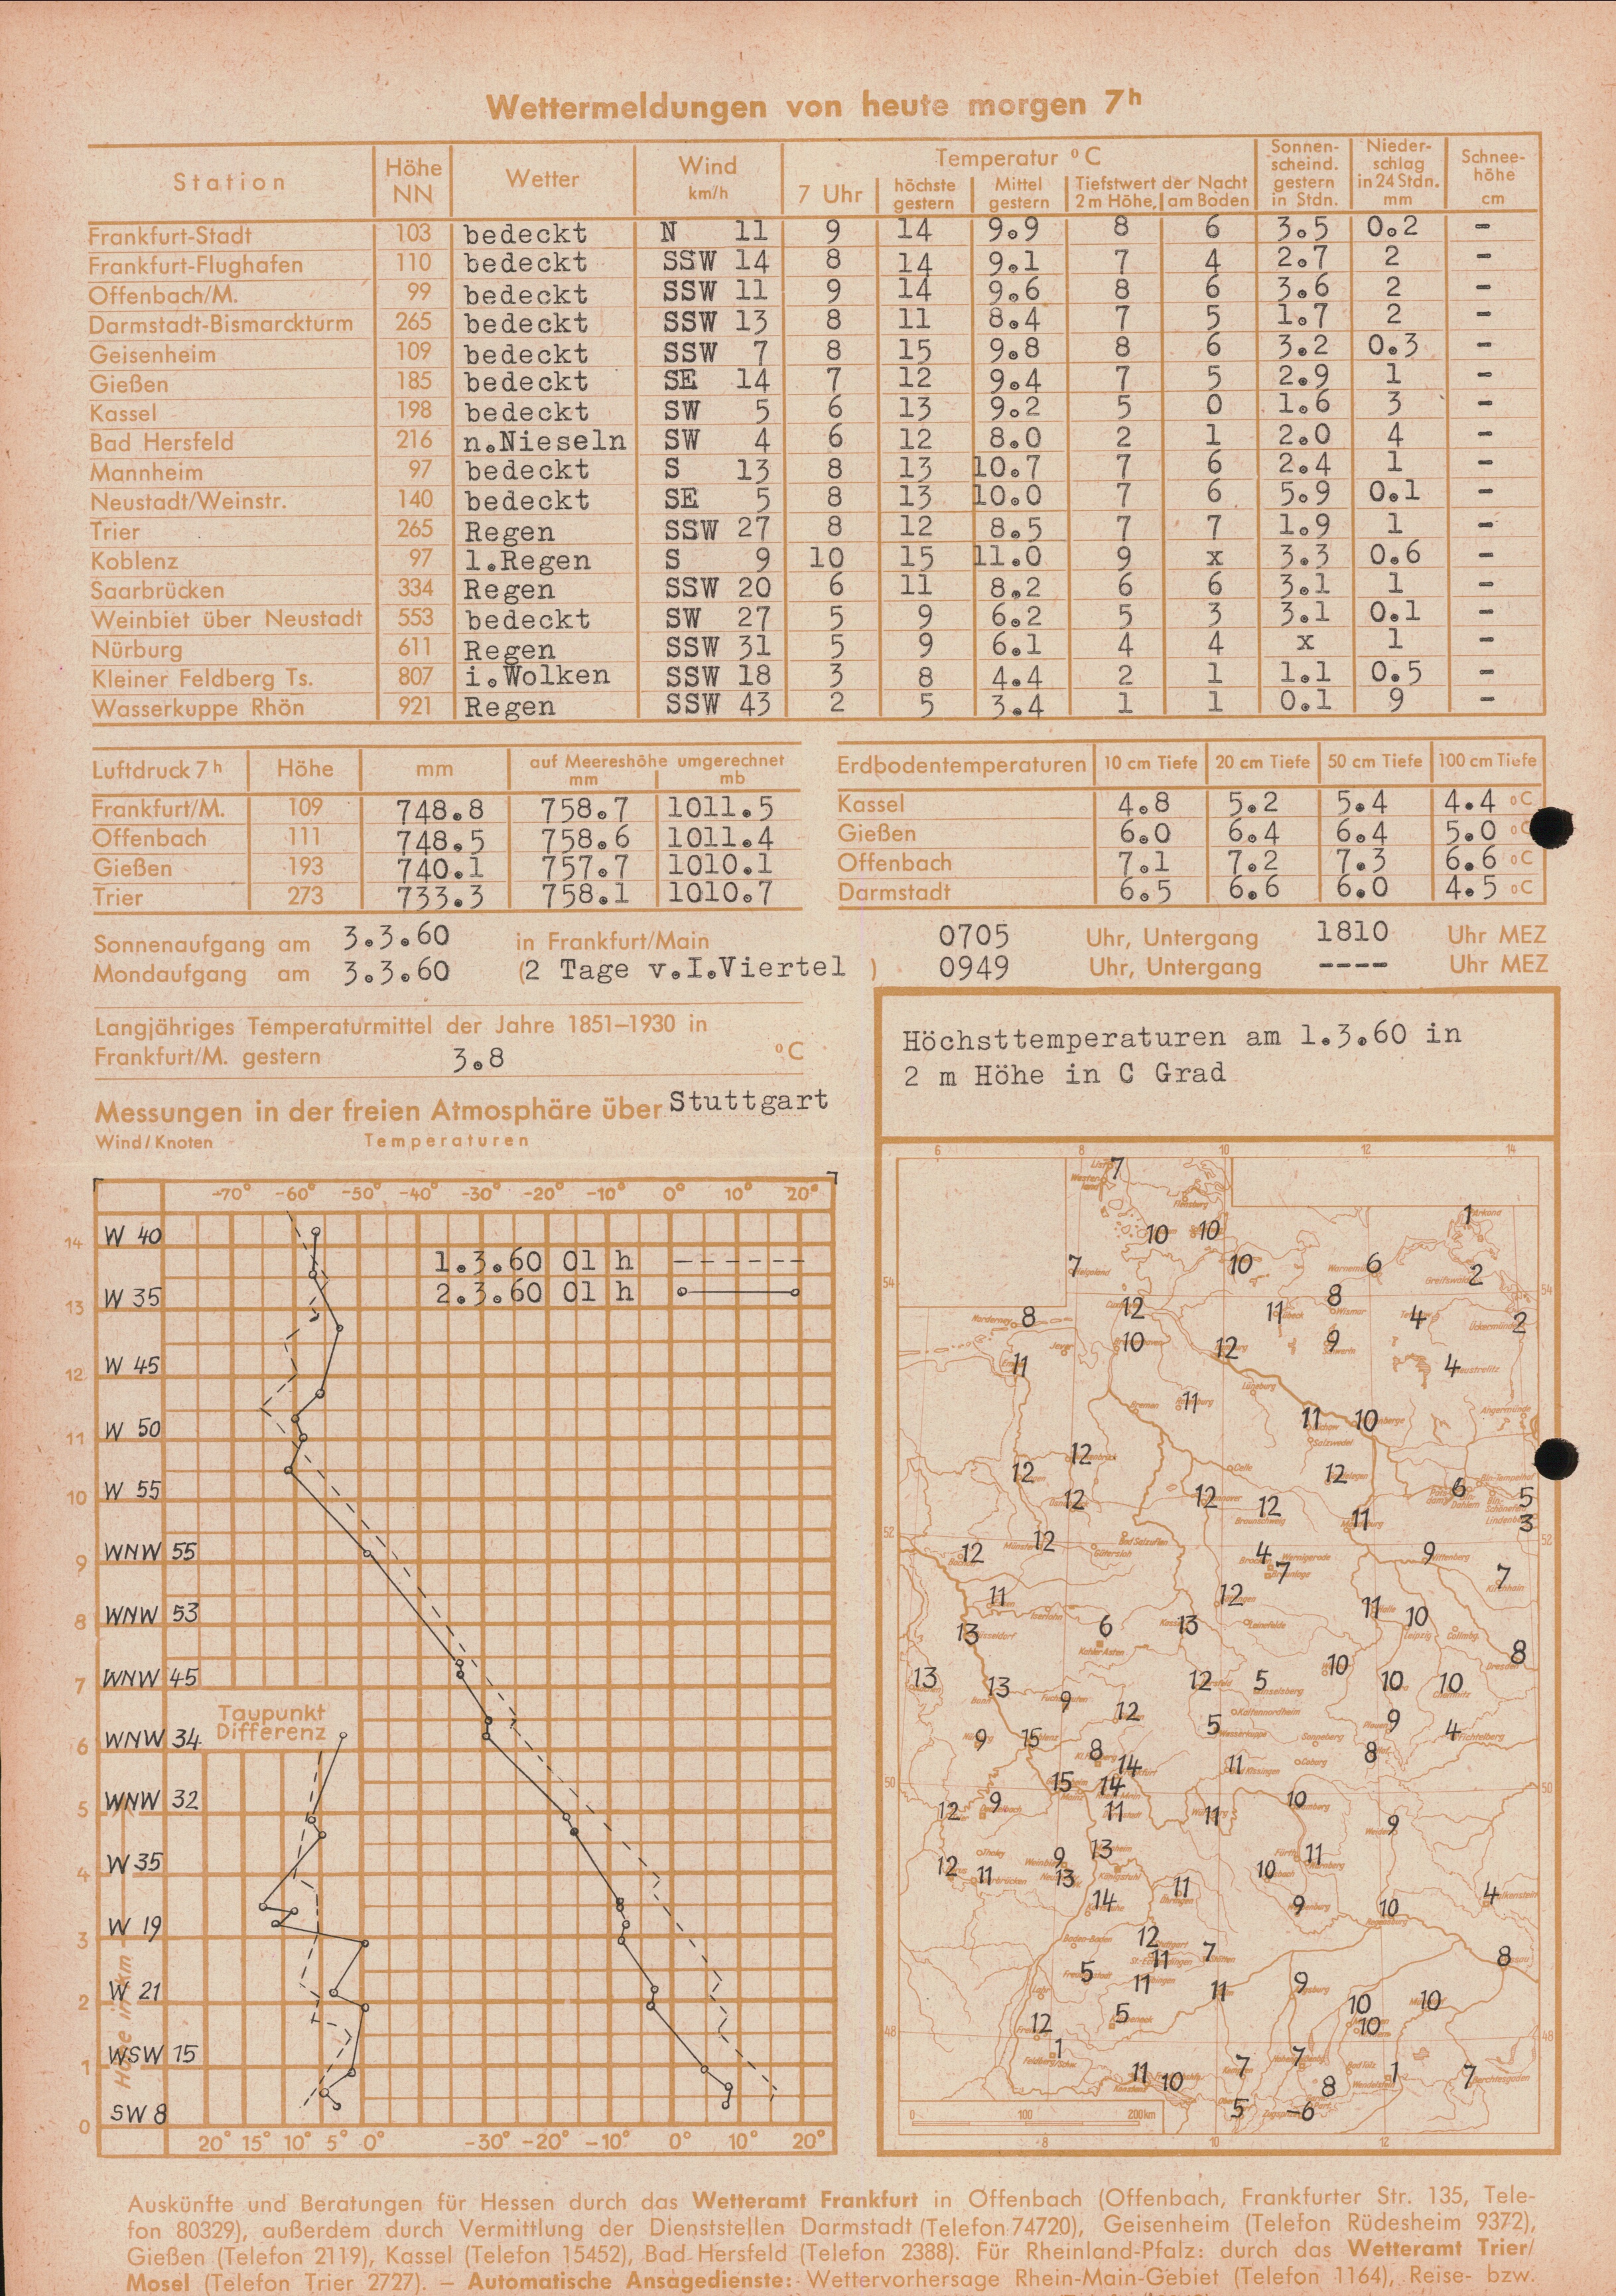 Wettermeldungen von heute morgen 7h
Station Höhe NN Wetter Wind km/h Temperatur °C 7 Uhr höchste gestern Mittel gestern Tiefstwert der Nacht 2 m Höhe, am Boden Sonnenscheind. gestern in Stdn. Niederschlag in 24 Stdn. mm Schneehöhe cm
Frankfurt-Stadt 103 bedeckt N 11 9 14 9.9 8 6 3.5 0.2 -
Frankfurt-Flughafen 110 bedeckt SSW 14 8 14 9.1 7 4 2.7 2 -
Offenbach/M. 99 bedeckt SSW 11 9 14 9.6 8 6 3.6 2 -
Darmstadt-Bismarckturm 265 bedeckt SSW 13 8 11 8.4 7 5 1.7 2 -
Geisenheim 109 bedeckt SSW 7 8 15 9.8 8 6 3.2 0.3 -
Gießen 185 bedeckt SE 14 7 12 9.4 7 5 2.9 1 -
Kassel 198 bedeckt SW 5 6 13 9.2 5 0 1.6 3 -
Bad Hersfeld 216 n.Nieseln SW 4 6 12 8.0 2 1 2.0 4 -
Mannheim 97 bedeckt S 13 8 13 10.7 7 6 2.4 1 -
Neustadt/Weinstr. 140 bedeckt SE 5 8 13 10.0 7 6 5.9 0.1 -
Trier 265 Regen SSW 27 8 12 8.5 7 7 1.9 1 -
Koblenz 97 l.Regen S 9 10 15 11.0 9 x 3.3 0.6 -
Saarbrücken 334 Regen SSW 20 6 11 8.2 6 6 3.1 1 -
Weinbiet über Neustadt 553 bedeckt SW 27 5 9 6.2 5 3 3.1 0.1 -
Nürburg 611 Regen SSW 31 5 9 6.1 4 4 x 1 -
Kleiner Feldberg Ts. 807 i.Wolken SSW 18 3 8 4.4 2 1 1.1 0.5 -
Wasserkuppe Rhön 921 Regen SSW 43 2 5 3.4 1 1 0.1 9 -
Luftdruck 7h Höhe mm auf Meereshöhe umgerechnet mm mb
Frankfurt/M. 109 748.8 758.7 1011.5
Offenbach 111 748.5 758.6 1011.4
Gießen 193 740.1 757.7 1010.1
Trier 273 733.3 758.1 1010.7
Erdbodentemperaturen 10 cm Tiefe 20 cm Tiefe 50 cm Tiefe 100 cm Tiefe
Kassel 4.8 5.2 5.4 4.4 °C
Gießen 6.0 6.4 6.4 5.0 °C
Offenbach 7.1 7.2 7.3 6.6 °C
Darmstadt 6.5 6.6 6.0 4.5 °C
Sonnenaufgang am 3.3.60 in Frankfurt/Main 0705 Uhr, Untergang 1810 Uhr MEZ
Mondaufgang am 3.3.60 (2 Tage v.I.Viertel ) 0949 Uhr, Untergang ---- Uhr MEZ
Langjähriges Temperaturmittel der Jahre 1851–1930 in
Frankfurt/M. gestern 3.8 °C
Messungen in der freien Atmosphäre über Stuttgart
Wind/Knoten Temperaturen
-70° -60° -50° -40° -30° -20° -10° 0° 10° 20°
14 W 40
1.3.60 01 h
2.3.60 01 h
13 W 35
12 W 45
11 W 50
10 W 55
9 WNW 55
8 WNW 53
7 WNW 45
Taupunkt
Differenz
6 WNW 34
5 WNW 32
4 W 35
3 W 19
2 W 21
1 WSW 15
0 SW 8
Höhe in km
20° 15° 10° 5° 0° -30° -20° -10° 0° 10° 20°
Höchsttemperaturen am 1.3.60 in
2 m Höhe in C Grad
6 8 10 12 14
7
10 10 1
7 10 6 2
54 54
8 12 11 8 4 2
11 10 12 9 4
11 11 10
12 12 12 6 5
12 12 12 11 3
52 52
12 12 4 7 9 7
11 12 11 10
13 6 13 8
13 13 9 12 5 10 10 10
12 5 9 4
9 15 8 14 11 8
50 50
15 14 10
12 9 11 11 9
12 11 9 13 13 10 11
14 11 9 10 4
12 11 7 8
5 11 11 9 10 10
48 48
12 5 10
1 11 10 7 7 1 7
5 -6 8
0 100 200km
8 10 12
Auskünfte und Beratungen für Hessen durch das Wetteramt Frankfurt in Offenbach (Offenbach, Frankfurter Str. 135, Tele-
fon 80329), außerdem durch Vermittlung der Dienststellen Darmstadt (Telefon 74720), Geisenheim (Telefon Rüdesheim 9372),
Gießen (Telefon 2119), Kassel (Telefon 15452), Bad Hersfeld (Telefon 2388). Für Rheinland-Pfalz: durch das Wetteramt Trier/
Mosel (Telefon Trier 2727). — Automatische Ansagedienste: Wettervorhersage Rhein-Main-Gebiet (Telefon 1164), Reise- bzw.